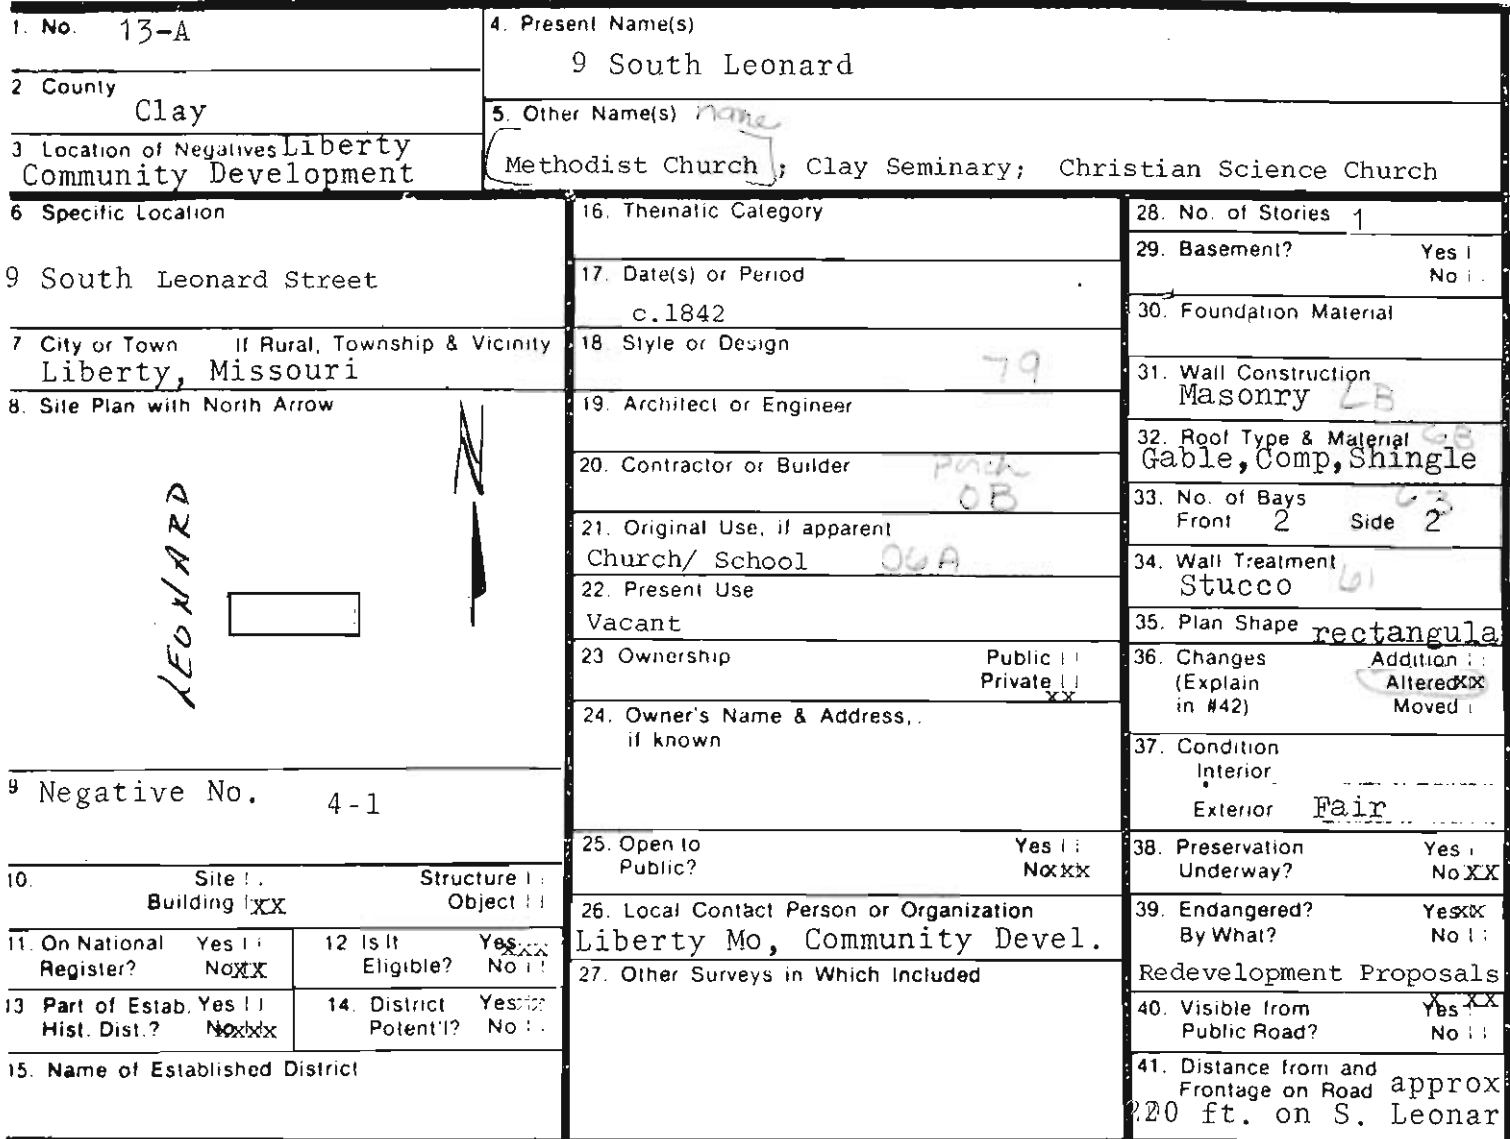 1. No. 13-A
2 County
Clay
3 Location of Negatives Liberty
Community Development
4. Present Name(s)
9 South Leonard
5. Other Name(s) name
Methodist Church; Clay Seminary; Christian Science Church
6 Specific Location
9 South Leonard Street
7 City or Town If Rural, Township & Vicinity
Liberty, Missouri
8. Site Plan with North Arrow
N
LEONARD
9 Negative No. 4-1
10. Site Structure
Building XX Object
11. On National Yes
Register? No XX
12 Is It Yes XXX
Eligible? No
13 Part of Estab. Yes
Hist. Dist.? No XXX
14. District Yes
Potent'l? No
15. Name of Established District
16. Thematic Category
17. Date(s) or Period
c.1842
18. Style or Design
79
19. Architect or Engineer
20. Contractor or Builder Porch
OB
21. Original Use, if apparent
Church/ School 06A
22. Present Use
Vacant
23 Ownership Public
Private
XX
24. Owner's Name & Address,
if known
25. Open to Yes
Public? No XX
26. Local Contact Person or Organization
Liberty Mo, Community Devel.
27. Other Surveys in Which Included
28. No. of Stories 1
29. Basement? Yes
No
30. Foundation Material
31. Wall Construction
Masonry
32. Roof Type & Material
Gable, Comp, Shingle
33. No. of Bays
Front 2 Side 2
34. Wall Treatment
Stucco 61
35. Plan Shape rectangula
36. Changes Addition
(Explain Altered XX
in #42) Moved
37. Condition
Interior
Exterior Fair
38. Preservation Yes
Underway? No XX
39. Endangered? Yes XX
By What? No
Redevelopment Proposals
40. Visible from Yes X XX
Public Road? No
41. Distance from and
Frontage on Road approx
20 ft. on S. Leonar